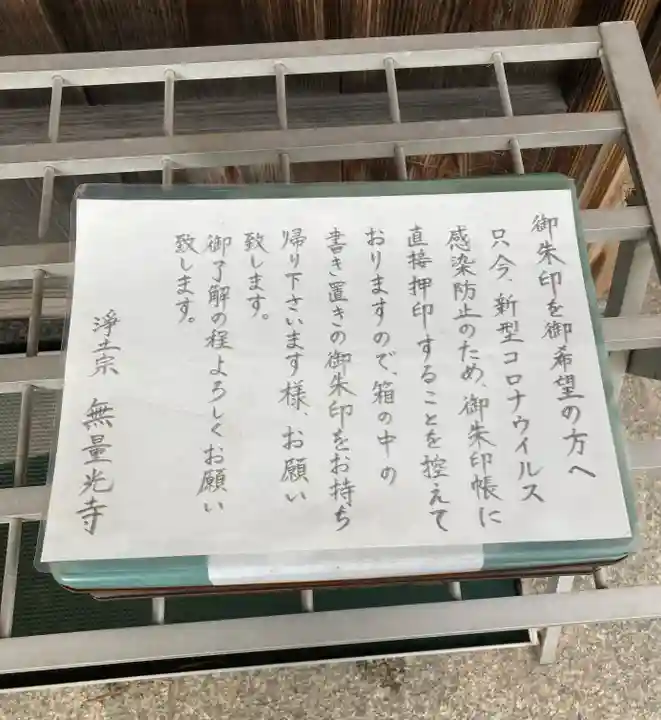 御朱印を御希望の方へ
只今、新型コロナウイルス
感染防止のため、御朱印帳に
直接押印することを控えて
おりますので、箱の中の
書き置きの御朱印をお持ち
帰り下さいます様、お願い
致します。
御了解の程よろしくお願い
致します。
浄土宗 無量光寺